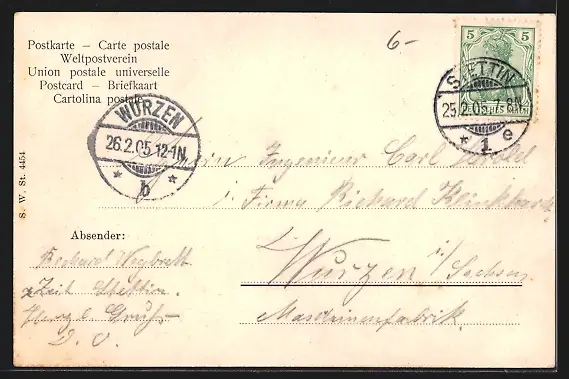 Postkarte – Carte postale
Weltpostverein
Union postale universelle
Postcard – Briefkaart
Cartolina postale
6-
5 5
STETTIN
25.2.05. 7-8N
* 1 e
WURZEN
26.2.05. 12-1N
* b *
S. W. St. 4454
Ingenieur Carl
i. Firma Richard Klinkhardt
Wurzen i/Sachsen
Maschinenfabrik.
Absender:
Richard
z Zeit Stettin.
Herzl Gruß
D. O.